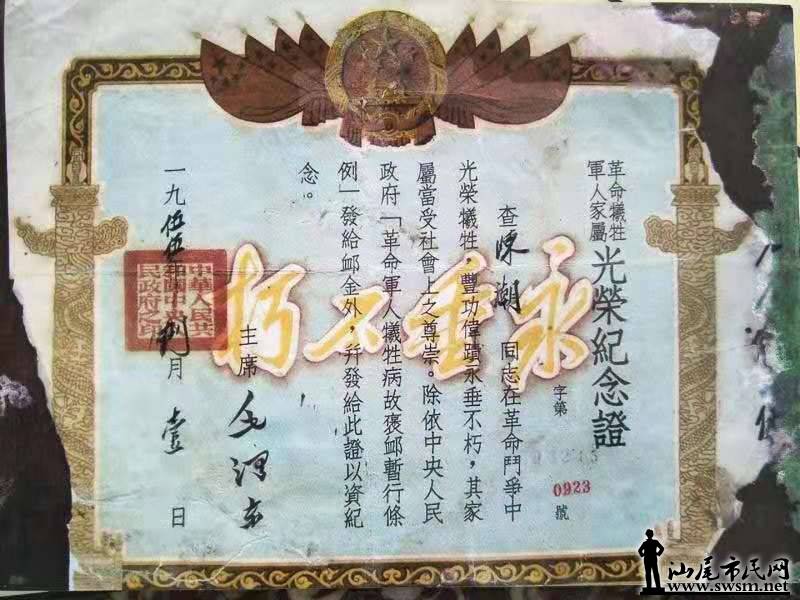 革命犧牲
軍人家屬
光榮紀念證
字第
0923
號
查陳潮同志在革命鬥爭中
光榮犧牲，豐功偉蹟永垂不朽，其家
屬當受社會上之尊崇。除依中央人民
政府「革命軍人犧牲病故褒卹暫行條
例」發給卹金外，幷發給此證以資紀
念。
永垂不朽
主席 毛澤東
一九伍伍年 月壹日
中華人民共
和國中央人
民政府之印
汕尾市民网
www.swsm.net